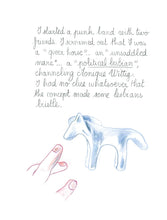 I started a punk band with two
friends. I screamed out that I was
a "queer horse", an "unsaddled
mare"... a "political lesbian",
channeling Monique Wittig.
I had no clue whatsoever that
the concept made some lesbians
bristle.